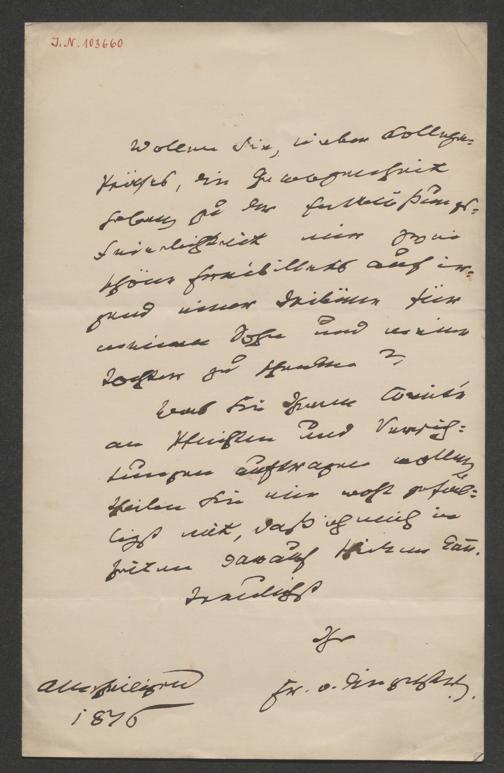 J. N. 103660
Wollen Sie, lieber Collega-
, die Gewogenheit
haben, zu der Enthüllungs-
Feierlichkeit mir zwei
schöne Freibillets auf ir-
gend einer Tribüne für
meinen Sohn und meine
Tochter zu schenken?
Was Sie Ihrem Comité
an Pflichten und Verrich-
tungen auftragen wollen,
theilen Sie mir wohl gefäl-
ligst mit, daß ich mich in
Zeiten darauf kann.
Freundlichst
Ihr
Fr. v. Dingelstedt.
Allerheiligen
1876